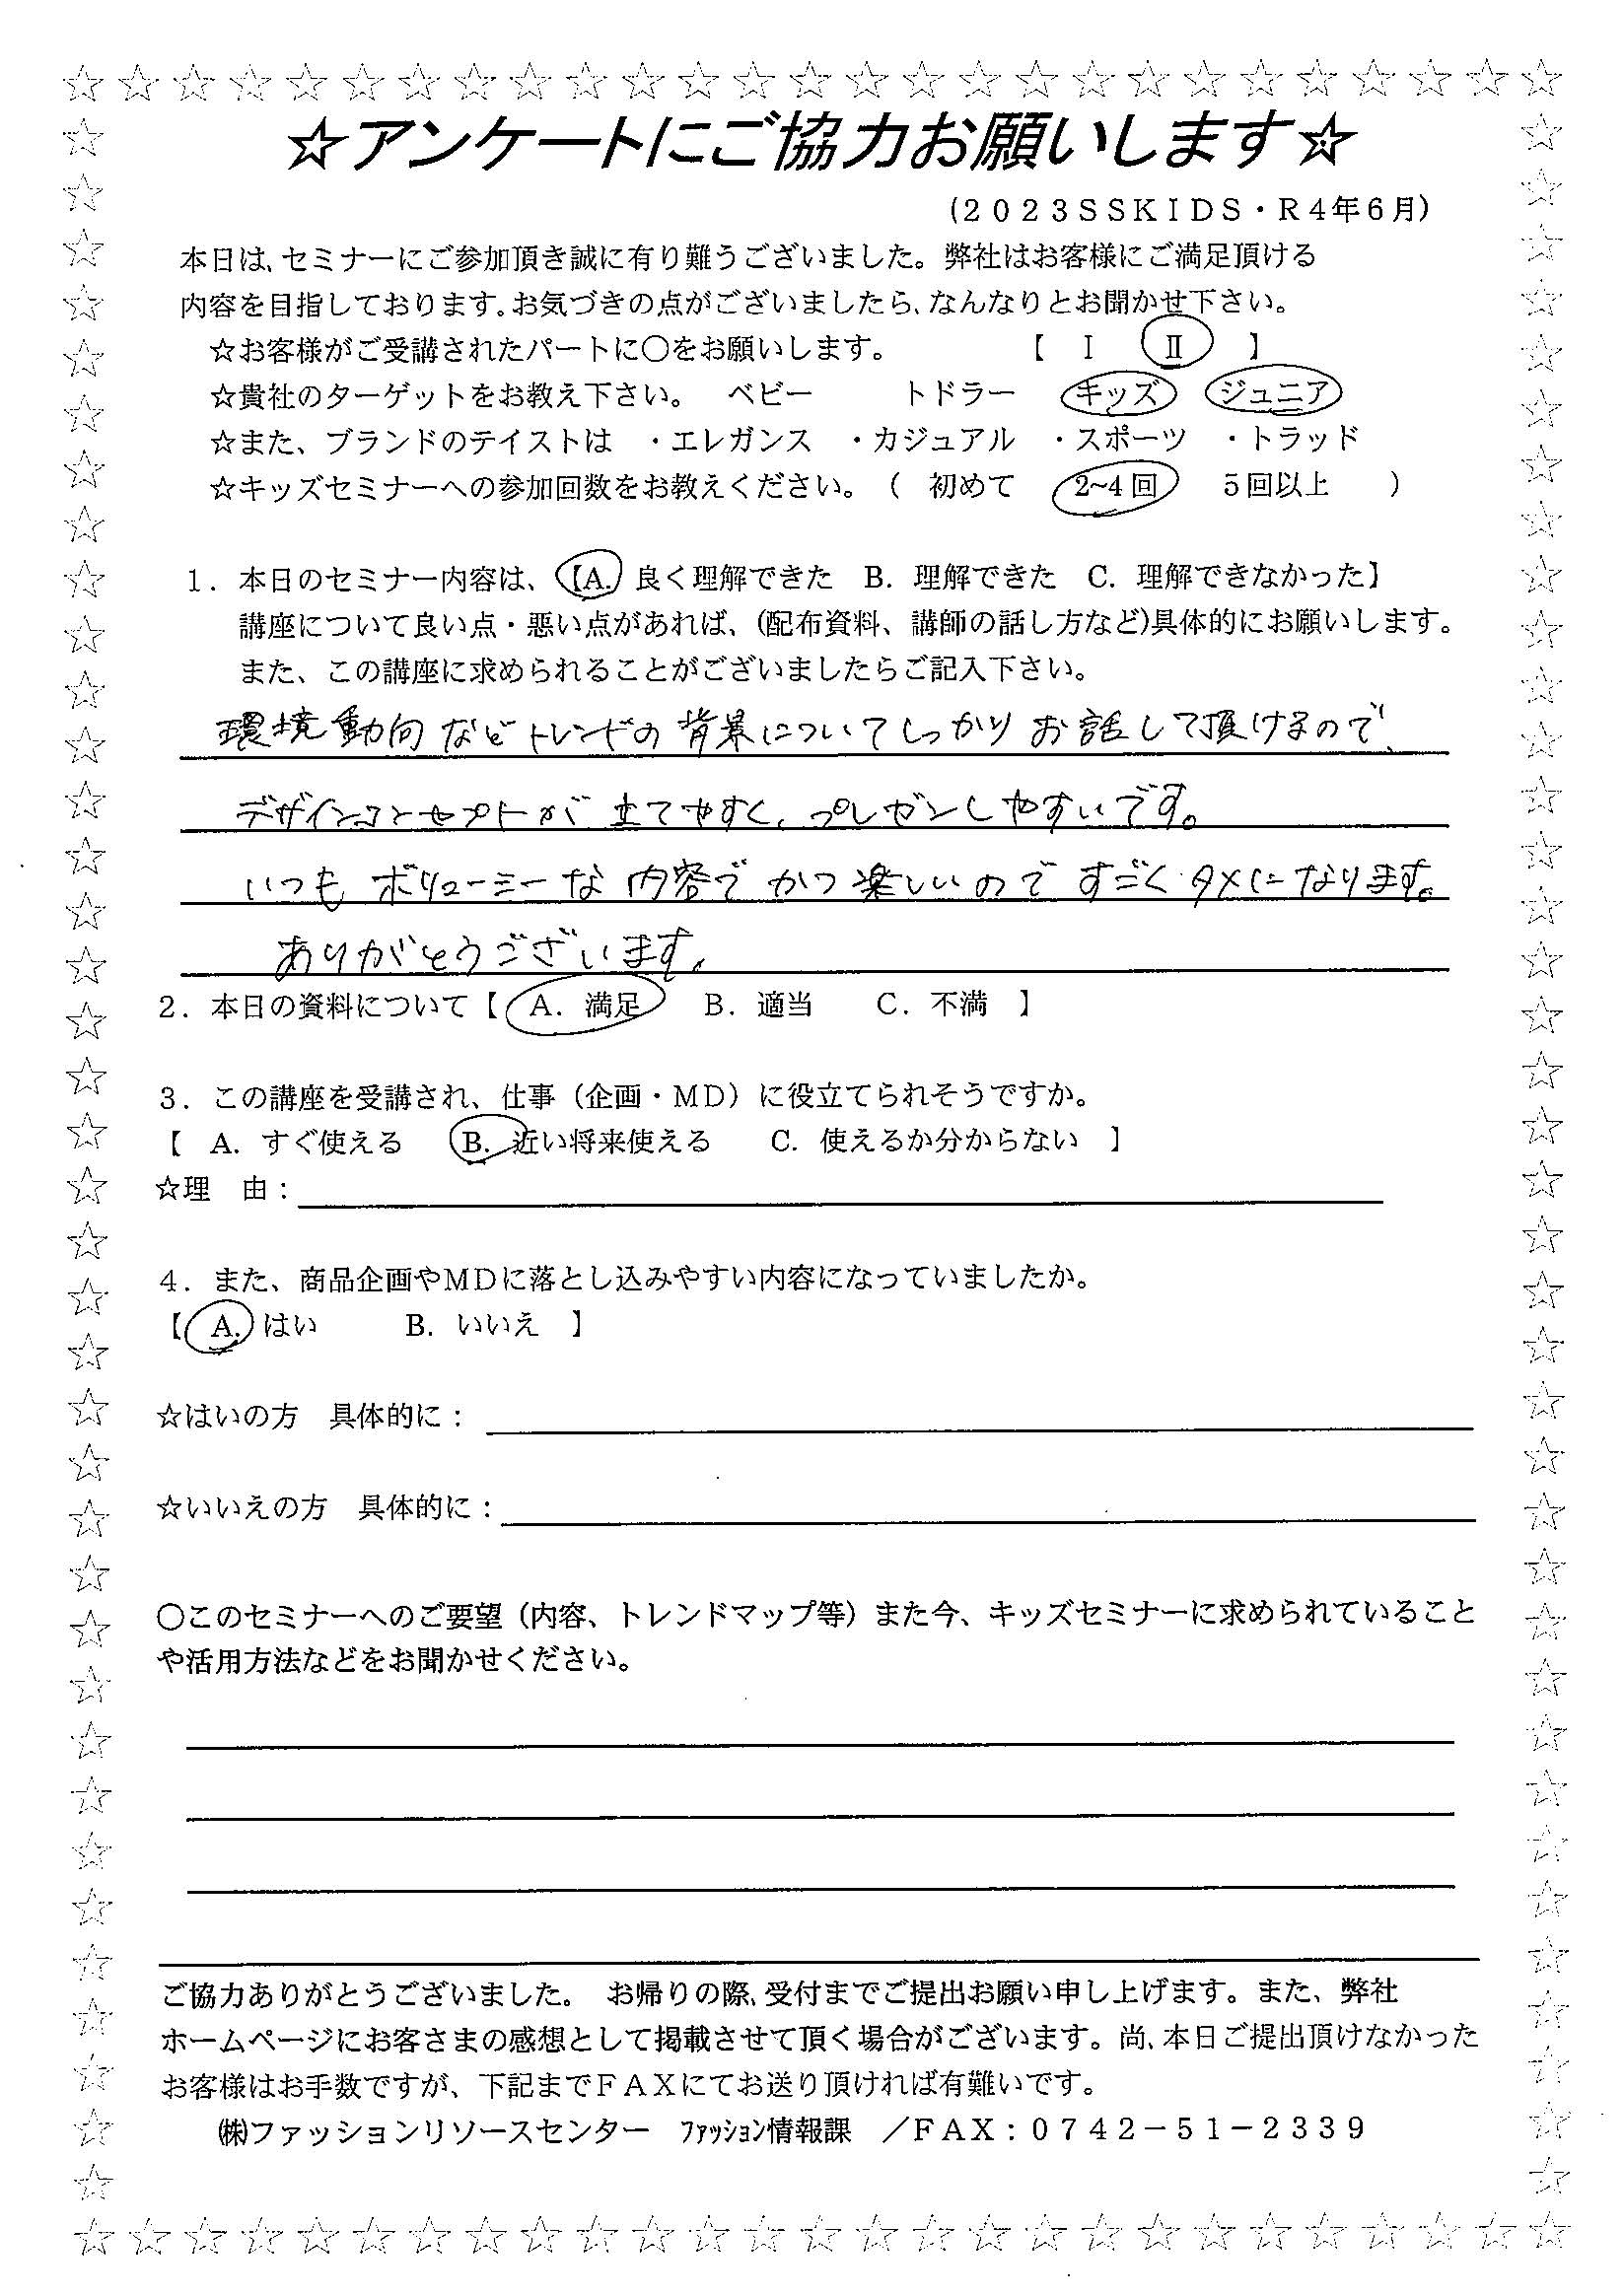 ☆アンケートにご協力お願いします☆
(2023SSKIDS・R4年6月)
本日は、セミナーにご参加頂き誠に有り難うございました。弊社はお客様にご満足頂ける
内容を目指しております。お気づきの点がございましたら、なんなりとお聞かせ下さい。
☆お客様がご受講されたパートに○をお願いします。 【 Ⅰ Ⅱ 】
☆貴社のターゲットをお教え下さい。 ベビー トドラー キッズ ジュニア
☆また、ブランドのテイストは ・エレガンス ・カジュアル ・スポーツ ・トラッド
☆キッズセミナーへの参加回数をお教えください。（ 初めて 2~4回 5回以上 ）
1．本日のセミナー内容は、【A. 良く理解できた B. 理解できた C. 理解できなかった】
講座について良い点・悪い点があれば、(配布資料、講師の話し方など)具体的にお願いします。
また、この講座に求められることがございましたらご記入下さい。
環境動向などトレンドの背景についてしっかりお話して頂けるので、
デザインコンセプトが立てやすく、プレゼンしやすいです。
いつもボリューミーな内容でかつ楽しいのですごくタメになります。
ありがとうございます。
2．本日の資料について【 A．満足 B．適当 C．不満 】
3．この講座を受講され、仕事（企画・MD）に役立てられそうですか。
【 A. すぐ使える B. 近い将来使える C. 使えるか分からない 】
☆理 由：
4．また、商品企画やMDに落とし込みやすい内容になっていましたか。
【 A. はい B. いいえ 】
☆はいの方 具体的に：
☆いいえの方 具体的に：
○このセミナーへのご要望（内容、トレンドマップ等）また今、キッズセミナーに求められていること
や活用方法などをお聞かせください。
ご協力ありがとうございました。 お帰りの際、受付までご提出お願い申し上げます。また、弊社
ホームページにお客さまの感想として掲載させて頂く場合がございます。尚、本日ご提出頂けなかった
お客様はお手数ですが、下記までＦＡＸにてお送り頂ければ有難いです。
㈱ファッションリソースセンター ﾌｧｯｼｮﾝ情報課 ／ＦＡＸ：０７４２－５１－２３３９